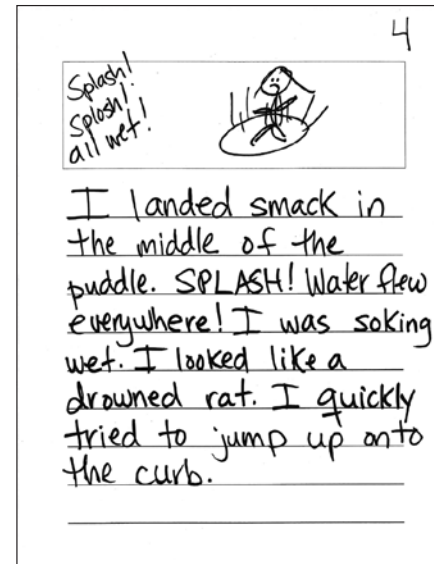 4
Splash!
Splosh!
all wet!
I landed smack in
the middle of the
puddle. SPLASH! Water flew
everywhere! I was soking
wet. I looked like a
drowned rat. I quickly
tried to jump up onto
the curb.